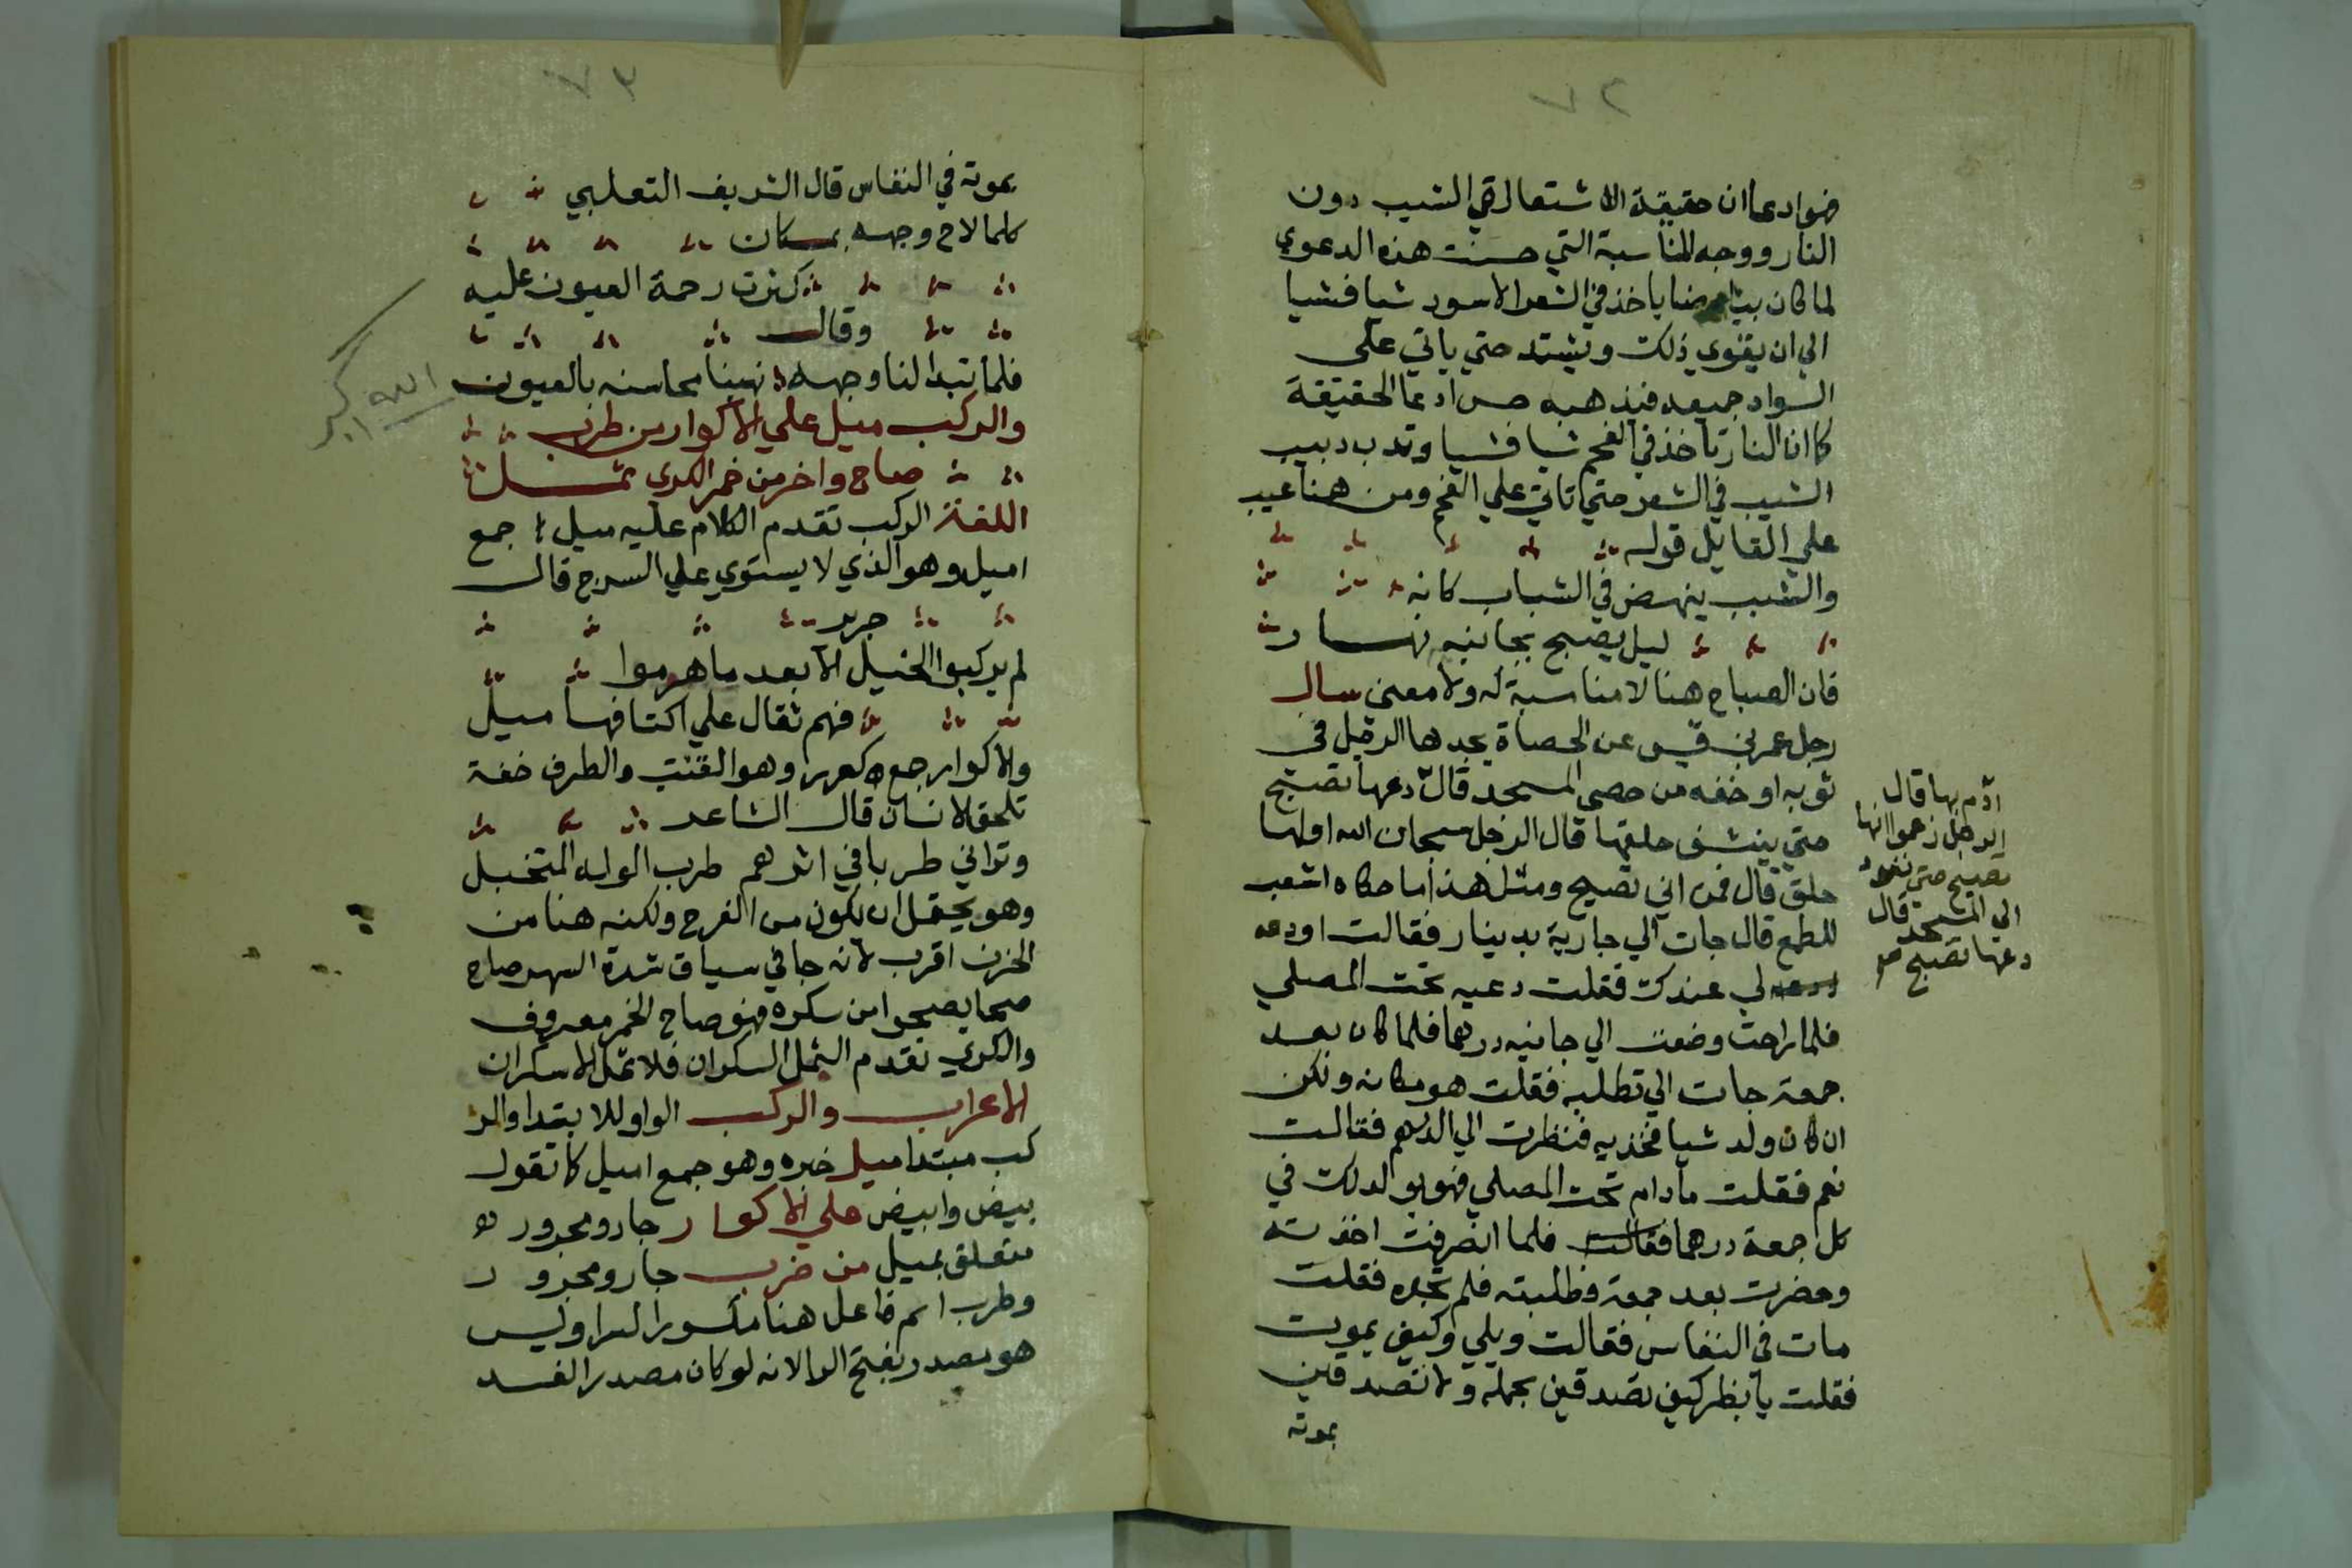 ٧٢
فهو ادعا ان حقيقة الاشتعال في الشيب دون
النار ووجه المناسبة التي حسنت هذه الدعوي
لما كان بياضنا ياخذ في الشعر الاسود شيا فشيا
الي ان يقوي ذلك ويشتد حتي ياتي علي
السواد جميعه فيذهبه حسن ادعا الحقيقة
كما ان النار تاخذ في الفحم شيا فشيا وتدب دبيب
الشيب في الشعر حتي تاتي علي الفحم ومن هنا عيب
علي القايل قوله
والشيب ينهض في الشباب كانه
ليل يصيح بجانبيه نهار
فان الصياح هنا لا مناسبة له ولا معني سال
رجل عمر بن قيس عن الحصاة يجدها الرجل في
ثوبه او خفه من حصي المسجد قال دعها تصيح
حتي ينشق حلقها قال الرجل سبحان الله اولها
حلق قال فمن اني تصيح ومثل هذا ما حكاه اشعب
للطمع قال جات الي جارية بدينار فقالت اودعه
لي عندك فقلت دعيه تحت المصلي
فلما راحت وضعت الي جانبه درهما فلما كان بعد
جمعة جات الي تطلبه فقلت هو مكانه ولكن
ان كان ولد شيا فخذيه فنظرت الي الدرهم فقالت
نعم فقلت ما دام تحت المصلي فهو يولد لك في
كل جمعة درهما فقالت فلما انصرفت اخذته
وحضرت بعد جمعة وطلبته فلم تجده فقلت
مات في النفاس فقالت ويلي وكيف يموت
فقلت يا بظر كيف تصدقين بحمله ولا تصدقين
بموته
ارم بها قال
الرجل زعموا انها
تصيح حتي تعود
الي المسجد قال
دعها تصيح صح
٧٣
بموته في النفاس قال الشريف التعلبي
كلما لاح وجهه بمكان
كثرت رحمة العيون عليه
وقال
فلما تبدا لنا وجهه نهبنا محاسنه بالعيون
والركب ميل علي الاكوار من طرب
صاح واخر من خمر الكري ثمل
اللغة الركب تقدم الكلام عليه ميل جمع
اميل وهو الذي لا يستوي علي السرج قال
جرير
لم يركبوا الخيل الا بعد ما هرموا
فهم ثقال علي اكتافها ميل
والاكوار جمع كور وهو القتب والطرب خفة
تلحق الانسان قال الشاعر
وتراني طربا في اثرهم طرب الواله المتخبل
وهو يحتمل ان يكون من الفرح ولكنه هنا من
الحزن اقرب لانه جا في سياق شدة السهر صاح
صحا يصحوا من سكره فهو صاح الخمر معروف
والكري تقدم الثمل السكران فلا ثمل الا سكران
الاعراب والركب الواو للابتدا والر
كب مبتدا ميل خبره وهو جمع اميل كما تقول
بيض وابيض علي الاكوار جار ومجرور
متعلق بميل من ضرب جار ومجرور
وطرب اسم فاعل هنا مكسور الرا وليس
هو مصدر بفتح الرا لانه لو كان مصدرا لفسد
الله اكبر